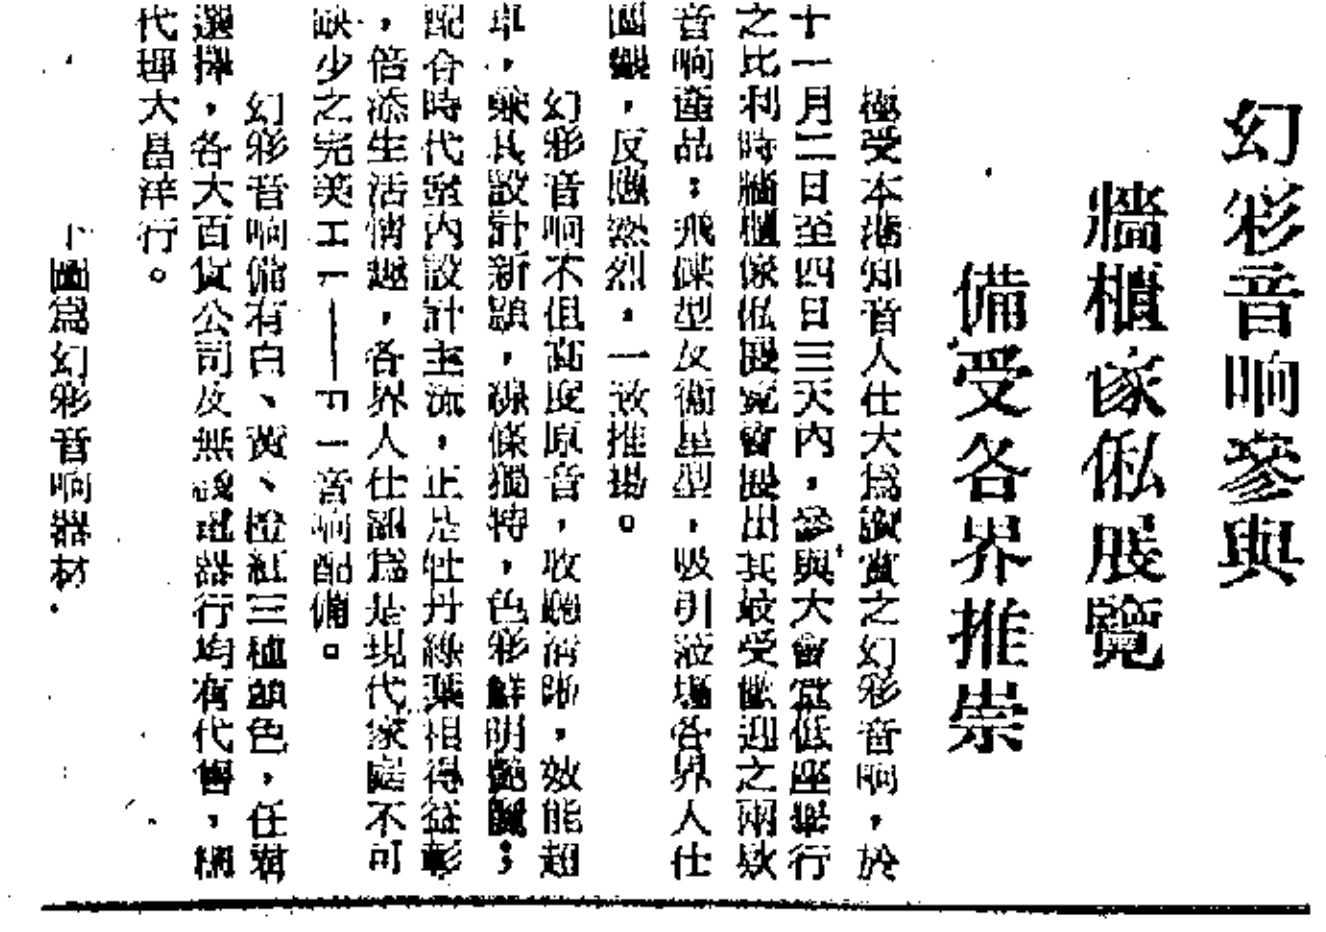 幻彩音响參與
牆櫃傢俬展覽
備受各界推崇
極受本港知音人仕大爲讚賞之幻彩音响，於
十一月二日至四日三天內，參與大會堂低座舉行
之比利時牆櫃傢俬展覽會展出其最受歡迎之兩欵
音响產品：飛碟型及衛星型，吸引蒞場各界人仕
圍觀，反應熱烈，一致推揚。
幻彩音响不但高度原音，收聽淸晰，效能超
卓，兼其設計新穎，線條獨特，色彩鮮明艷麗；
配合時代室內設計主流，正是牡丹綠葉相得益彰
，倍添生活情趣，各界人仕認爲是現代家庭不可
缺少之完美工 — 音响配備。
幻彩音响備有白、黃、橙紅三種顏色，任君
選擇，各大百貨公司及無綫電器行均有代售，
代理大昌洋行。
圖爲幻彩音响器材．